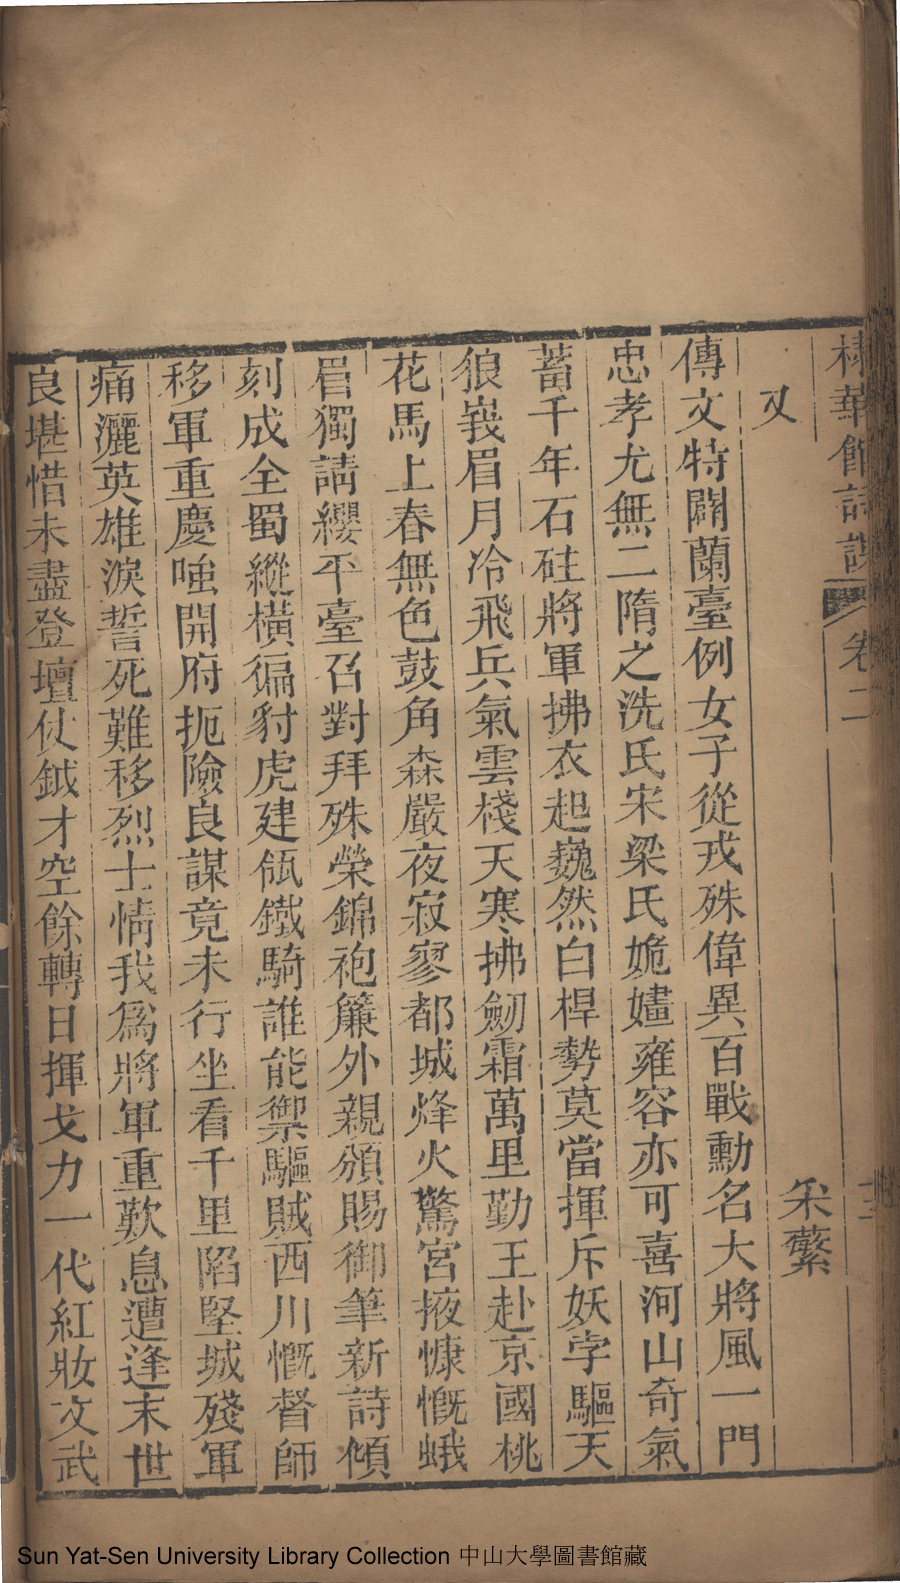 棣華館詩課 卷二 十二
又 采蘩
傳文特闢蘭臺例女子從戎殊偉異百戰勳名大將風一門
忠孝尤無二隋之洗氏宋梁氏姽嫿雍容亦可喜河山奇氣
蓄千年石砫將軍拂衣起巍然白桿勢莫當揮斥妖孛驅天
狼峩眉月冷飛兵氣雲棧天寒拂劒霜萬里勤王赴京國桃
花馬上春無色鼓角森嚴夜寂寥都城烽火驚宮掖慷慨蛾
眉獨請纓平臺召對拜殊榮錦袍簾外親頒賜御筆新詩傾
刻成全蜀縱橫徧豺虎建瓴鐵騎誰能禦驅賊西川慨督師
移軍重慶嗤開府扼險良謀竟未行坐看千里陷堅城殘軍
痛灑英雄淚誓死難移烈士情我爲將軍重歎息遭逢末世
良堪惜未盡登壇仗鉞才空餘轉日揮戈力一代紅妝文武
Sun Yat-Sen University Library Collection 中山大學圖書館藏